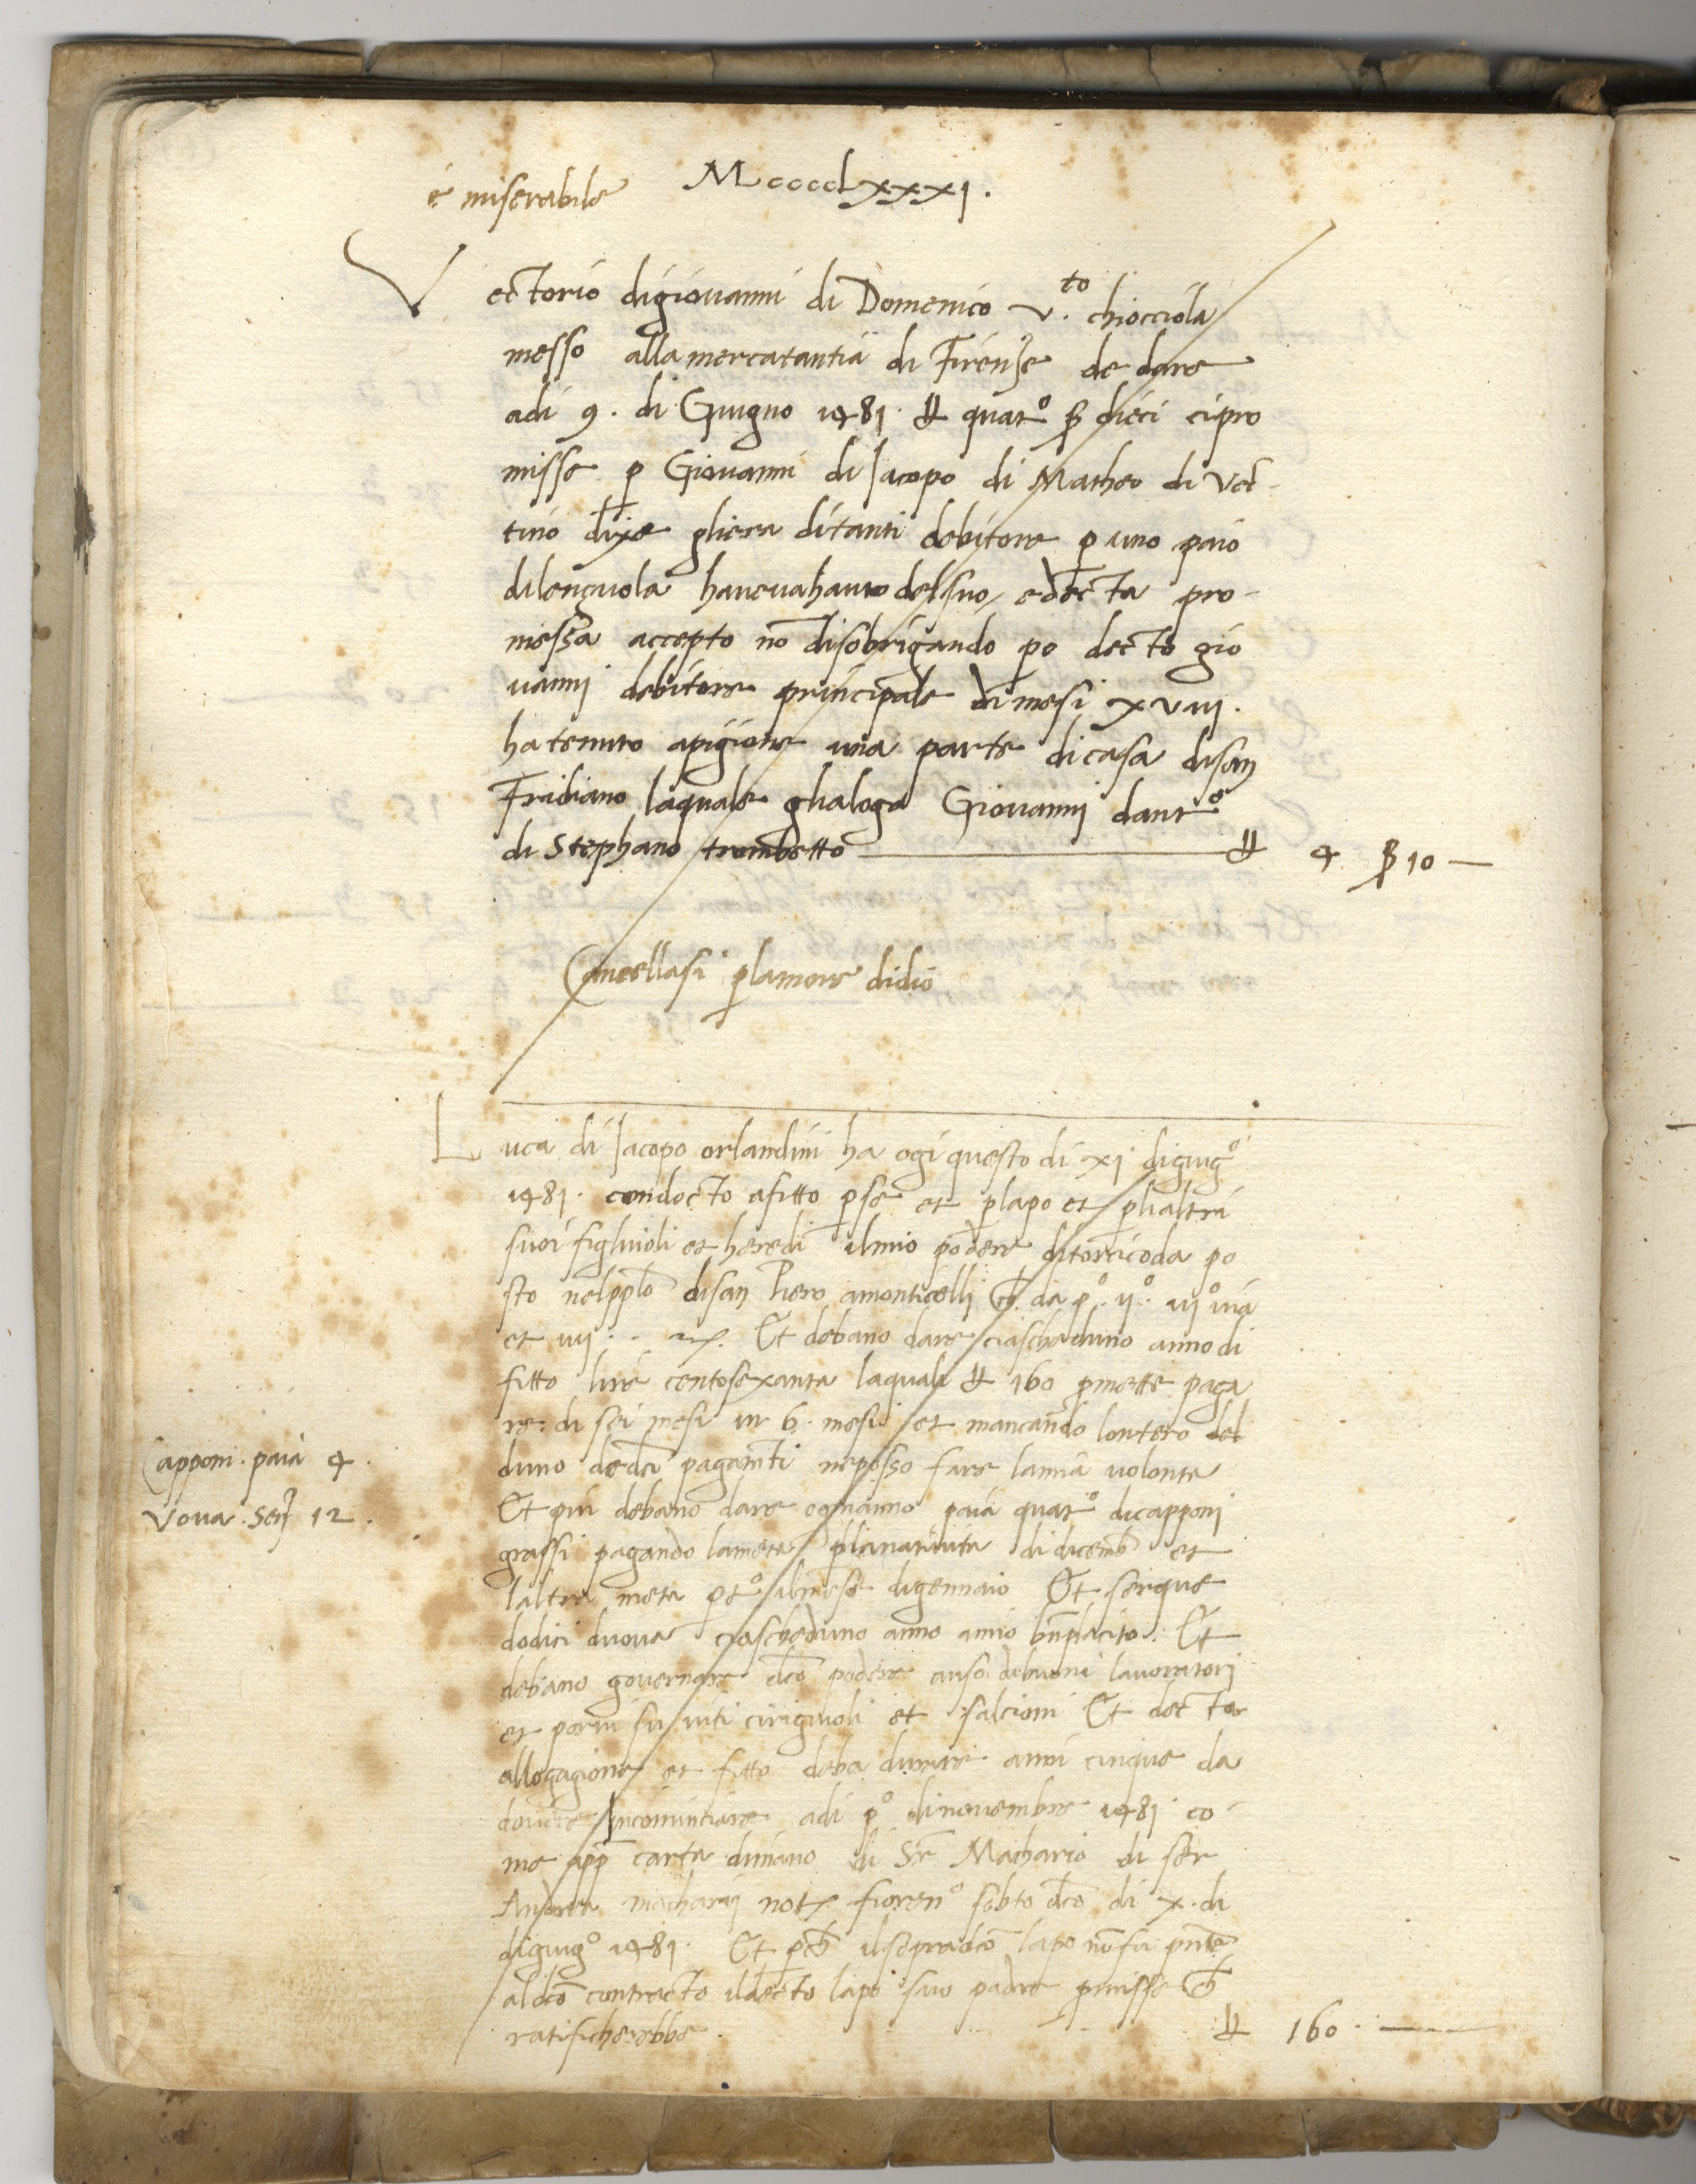 é miserabile Mccccl xxxj.
Vectorio digiovanni di Domenico v.to chiocciola
messo alla mercatantia di Firenze de dare
adi 9. di Giugno 1481. ₶ quat° β dieci cipro
misse p Giovanni di Jacopo di Matheo di Vet
tino gliera ditanti debitore p uno paio
dilençuola havevahauto delsuo edecta pro-
messa accepto nō disobrigando po decto gio
vannj debitore principale di mesi xviij.
hatenuto apigione una parte dicasa disan
Fridiano laquale glialoga Giovannj dant°
di Stephano trombetto ₶ 4 β 10 —
Cancellasi plamore didio
Luca di Jacopo orlandini ha ogi questo di xi digiug°
1481. condocto afitto pse et plapo et pglialtri
suoi figliuoli et heredi ilmio podere ditorricoda po
sto nelpplo disan Piero amonticelli da p° ij° iij° via
et iiij Et debano dare ciascheduno anno di
fitto lire centosexanta laquali ₶ 160 pmette paga
re: di sei mesi in 6. mesi et mancando lontero del
duno dedci pagamti neposso fare lamia volonta
Et piu debano dare ognanno paia quat° dicapponi
grassi pagando lameta planativita didicemb et
laltra meta ilmese digennaio Et serque
dodici duova ciascheduno anno amio bnplacito. Et
debano governare dco podere auso debuoni lavoratori
et porvi su viti ciriguoli et salcioni Et decta
allogagione et fitto deba durare anni cinque da
dovere incominciare adi p° dinovembre 1481 co
me app carta dimano di Sr Machario di ser
Andrea macharij not fioren° sobto dco di x. di
digiug° 1481. Et pch ilsopradco lapo nōfu pnte
aldco contracto ildecto lapo suo padre pmisse ch
ratificherebbe. ₶ 160. —
Capponi. paia 4.
Vova. Serq 12.